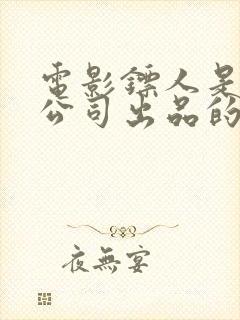 電影鏢人是
公司出品的
夜無宴